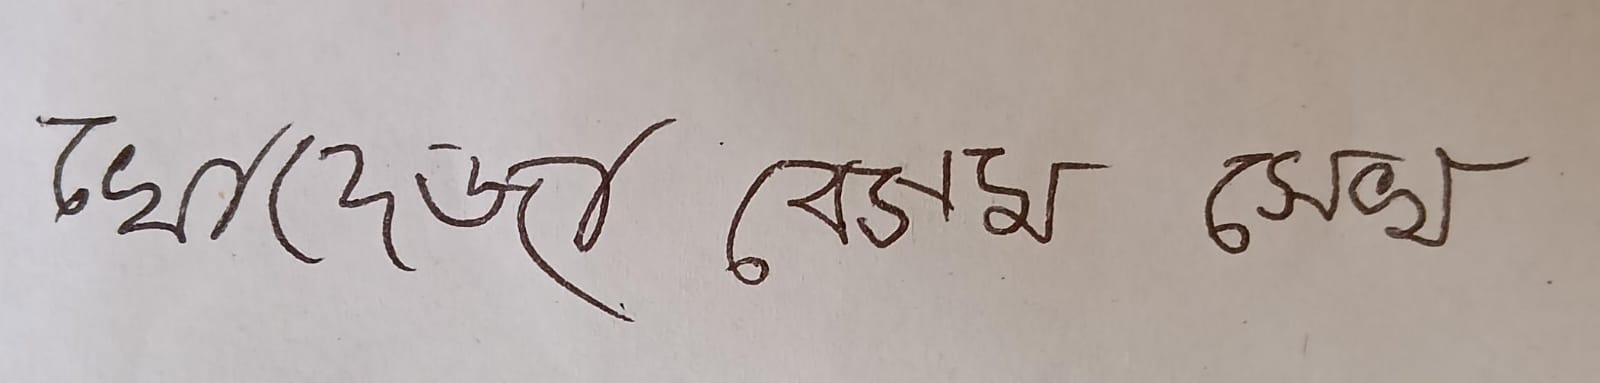 খোদেজা বেগম সেখ